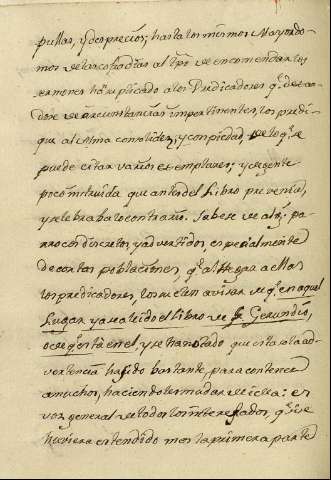 pullas, y desprecios; hasta los mismos Mayordo-
mos de las cofradias al tpo de encomendar los
sermones han suplicado a los Predicadores q.e dexan-
dose de circunstancias impertinentes, los predi-
que al Alma con solidez, y con piedad, de lo q.e se
puede citar varios exemplares; y de gente
poco instruida que antes del Libro prevenia,
y celebraba lo contrario. Sabese de alg.s pa-
rrocos discretos y advertidos, especialmente
de cortas poblaciones, q.e al llegar a ellas
los predicadores, los suelen avisar de q.e en aquel
Lugar ya ha leido el Libro de Fr. Gerundio,
o de q.e esta en el, y se ha notado que esta sola ad-
vertencia ha sido bastante, para contener
a muchos, haciendoles mudar de idea: es
voz general de todos los interesados, q.e si se
huviera estendido mas la primera parte